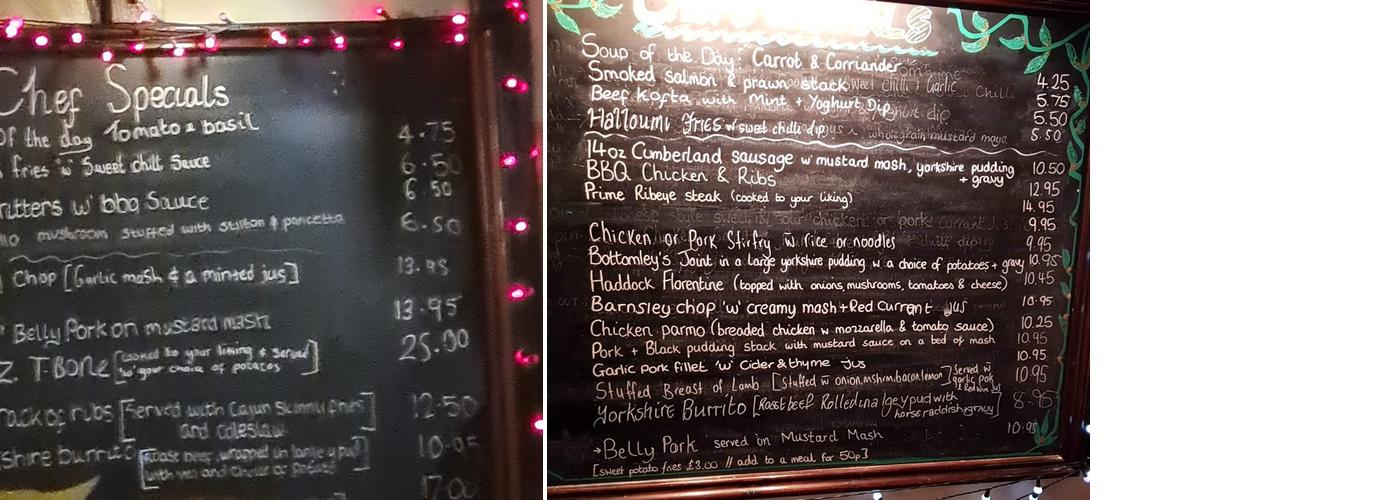 Chef Specials
of the day Tomato & basil 4.75
fries w Sweet chilli Sauce 6.50
ritters w' bbq Sauce 6.50
mushroom stuffed with stilton & pancetta 6.50
Chop [Garlic mash & a minted jus] 13.95
Belly Pork on mustard mash 13.95
Z. T-BONE [cooked to your liking & served 25.00
w' your choice of potatoes]
rack of ribs [Served with Cajun Skinny fries 12.50
and coleslaw]
shire burrito [roast beef, wrapped in large ypud 10.95
with veg and choice of potato]
17.00
Soup of the Day: Carrot & Corriander 4.25
Smoked salmon & prawn stack 5.75
Beef Kofta with Mint + Yoghurt Dip 5.50
Halloumi Fries w sweet chilli dip 5.50
14oz Cumberland sausage w mustard mash, yorkshire pudding 10.50
+ gravy
BBQ Chicken & Ribs 12.95
Prime Ribeye steak (cooked to your liking) 14.95
9.95
Chicken or Pork Stirfry w rice or noodles 9.95
Bottomley's Joint in a large yorkshire pudding w a choice of potatoes + gravy 10.95
Haddock Florentine (topped with onions, mushrooms, tomatoes & cheese) 10.45
Barnsley chop 'w' creamy mash + Red Currant jus 10.95
Chicken parmo (breaded chicken w mozzarella & tomato sauce) 10.25
Pork + Black pudding stack with mustard sauce on a bed of mash 10.95
Garlic Pork fillet 'w' Cider & thyme jus 10.95
Stuffed Breast of Lamb [Stuffed w onion, mshrm, bacon, lemon] Served w 10.95
garlic
& Red wine jus
Yorkshire Burrito [Roast beef Rolled in a lge y pud with 8.95
horseraddish & gravy]
→ Belly Pork served on Mustard Mash 10.95
[sweet potato fries £3.00 // add to a meal for 50p]